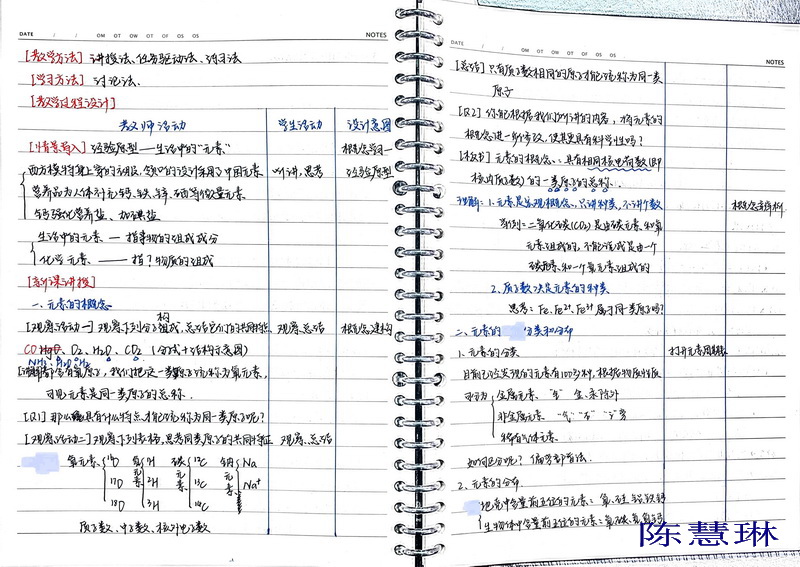 DATE / / OM OT OW OT OF OS OS NOTES
[教学方法] 讲授法、任务驱动法、讲习法
[学习方法] 讨论法、
[教学过程设计]
教师活动 学生活动 设计意图
[情景导入] 经验原型——生活中的"元素" 概念学习—
听讲、思考 经验原型
营养品为人体补充钙、铁、锌、硒等微量元素
钙强化营养盐、加碘盐
生活中的元素 — 指事物的组成成分
化学元素 —— 指?物质的组成
[新课讲授]
一、元素的概念
[观察活动一] 观察下列分子构成,总结它们的共同特征 观察、总结 概念建构
CO、O₂、H₂O、CO₂ (分子+结构示意图)
可见元素是同一类原子的总称.
[Q1] 那么具有什么特点才能统称为同一类原子呢?
[观察活动二] 观察下列表格,思考同类原子的共同特征 观察、总结
氧元素 ¹⁶O 氢元素 ¹H 碳元素 ¹²C 钠元素 Na
¹⁷O ²H ¹³C Na⁺
¹⁸O ³H ¹⁴C
质子数、中子数、核外电子数
DATE / / OM OT OW OT OF OS OS NOTES
[总结] 只有质子数相同的原子才能统称为同一类
原子
[Q2] 你能根据我们所讲的内容,将元素的
概念进一步修改,使其更具有科学性吗?
[板书] 元素的概念:具有相同核电荷数(即
核内质子数)的一类原子的总称.
理解:1.元素是宏观概念,只讲种类,不讲个数 概念辨析
举例:二氧化碳(CO₂)是由碳元素和氧
元素组成的,不能说成是由一个
碳元素和一个氧元素组成的
2. 质子数决定元素的种类
思考:Fe、Fe²⁺、Fe³⁺属于同一类原子吗?
二、元素的分类和分布
1.元素的分类 打开元素周期表
目前已经发现的元素有100多种,根据物质性质
可分为 金属元素 "钅" 金、汞除外
非金属元素 "气""石""氵"旁
稀有气体元素
如何区分呢? 偏旁部首法.
2.元素的分布
地壳中含量前五位的元素:氧、硅、铝、铁、钙
生物体中含量前五位的元素:氧、碳、氢、氮、钙
陈慧琳